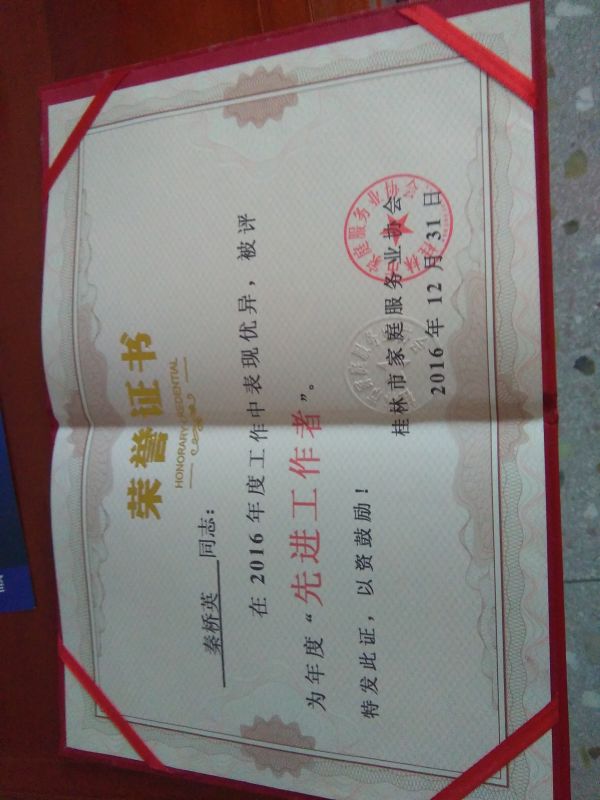 荣誉证书
HONORARY CREDENTIAL
秦桥英 同志：
在 2016 年度工作中表现优异，被评
为年度“先进工作者”。
特发此证，以资鼓励！
桂林市家庭服务业协会
2016 年 12 月 31 日